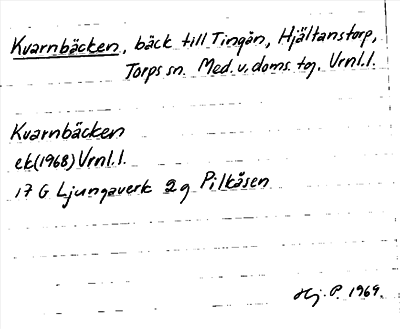 Kvarnbäcken, bäck till Tingån, Hjältanstorp,
Torps sn. Med. v. doms. tg. Vrnl. l.
Kvarnbäcken
ek (1968) Vrnl. l.
17 G Ljungaverk 2g Pilkåsen
Hj. P. 1969.